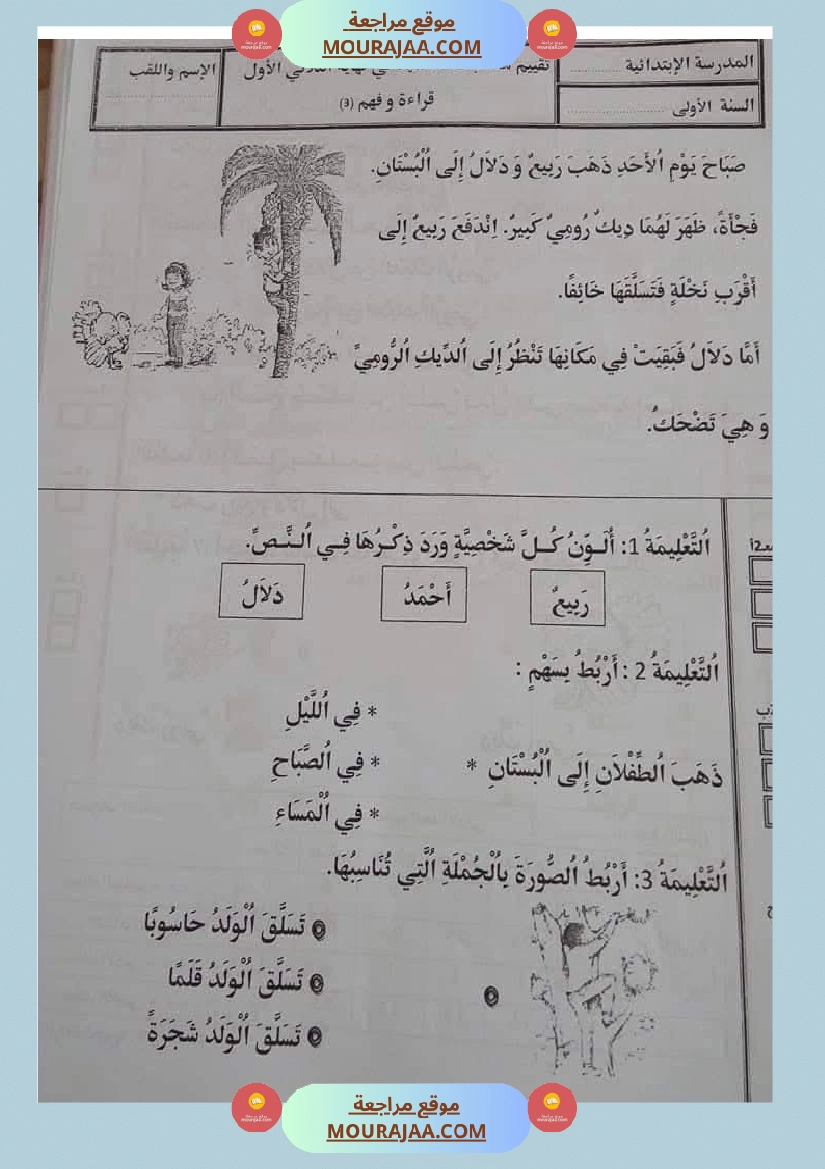 موقع مراجعة
MOURAJAA.COM
المدرسة الإبتدائية ..............
السنة الأولى ......................
تقييم
نهاية الثلاثي الأول
قراءة و فهم (3)
الإسم واللقب
صَبَاحَ يَوْمِ اُلأَحَدِ ذَهَبَ رَبِيعٌ وَ دَلاَلُ إِلَى اُلْبُسْتَانِ.
فَجْأَةً، ظَهَرَ لَهُمَا دِيكٌ رُومِيٌّ كَبِيرٌ. اِنْدَفَعَ رَبِيعٌ إِلَى
أَقْرَبِ نَخْلَةٍ فَتَسَلَّقَهَا خَائِفًا.
أَمَّا دَلاَلُ فَبَقِيَتْ فِي مَكَانِهَا تَنْظُرُ إِلَى اُلدِّيكِ اُلرُّومِيِّ
وَ هِيَ تَضْحَكُ.
اُلتَّعْلِيمَةُ 1: أُلَـوِّنُ كُــلَّ شَخْصِيَّةٍ وَرَدَ ذِكْـرُهَا فِـي اُلـنَّـصِّ.
رَبِيعٌ
أَحْمَدُ
دَلاَلُ
اُلتَّعْلِيمَةُ 2 : أَرْبُطُ بِسَهْمٍ :
* فِي اُللَّيْلِ
ذَهَبَ اُلطِّفْلاَنِ إِلَى اُلْبُسْتَانِ * * فِي اُلصَّبَاحِ
* فِي اُلْمَسَاءِ
اُلتَّعْلِيمَةُ 3: أَرْبُطُ اُلصُّورَةَ بِاُلْجُمْلَةِ اُلَّتِي تُنَاسِبُهَا.
تَسَلَّقَ اُلْوَلَدُ حَاسُوبًا
تَسَلَّقَ اُلْوَلَدُ قَلَمًا
تَسَلَّقَ اُلْوَلَدُ شَجَرَةً
موقع مراجعة
MOURAJAA.COM